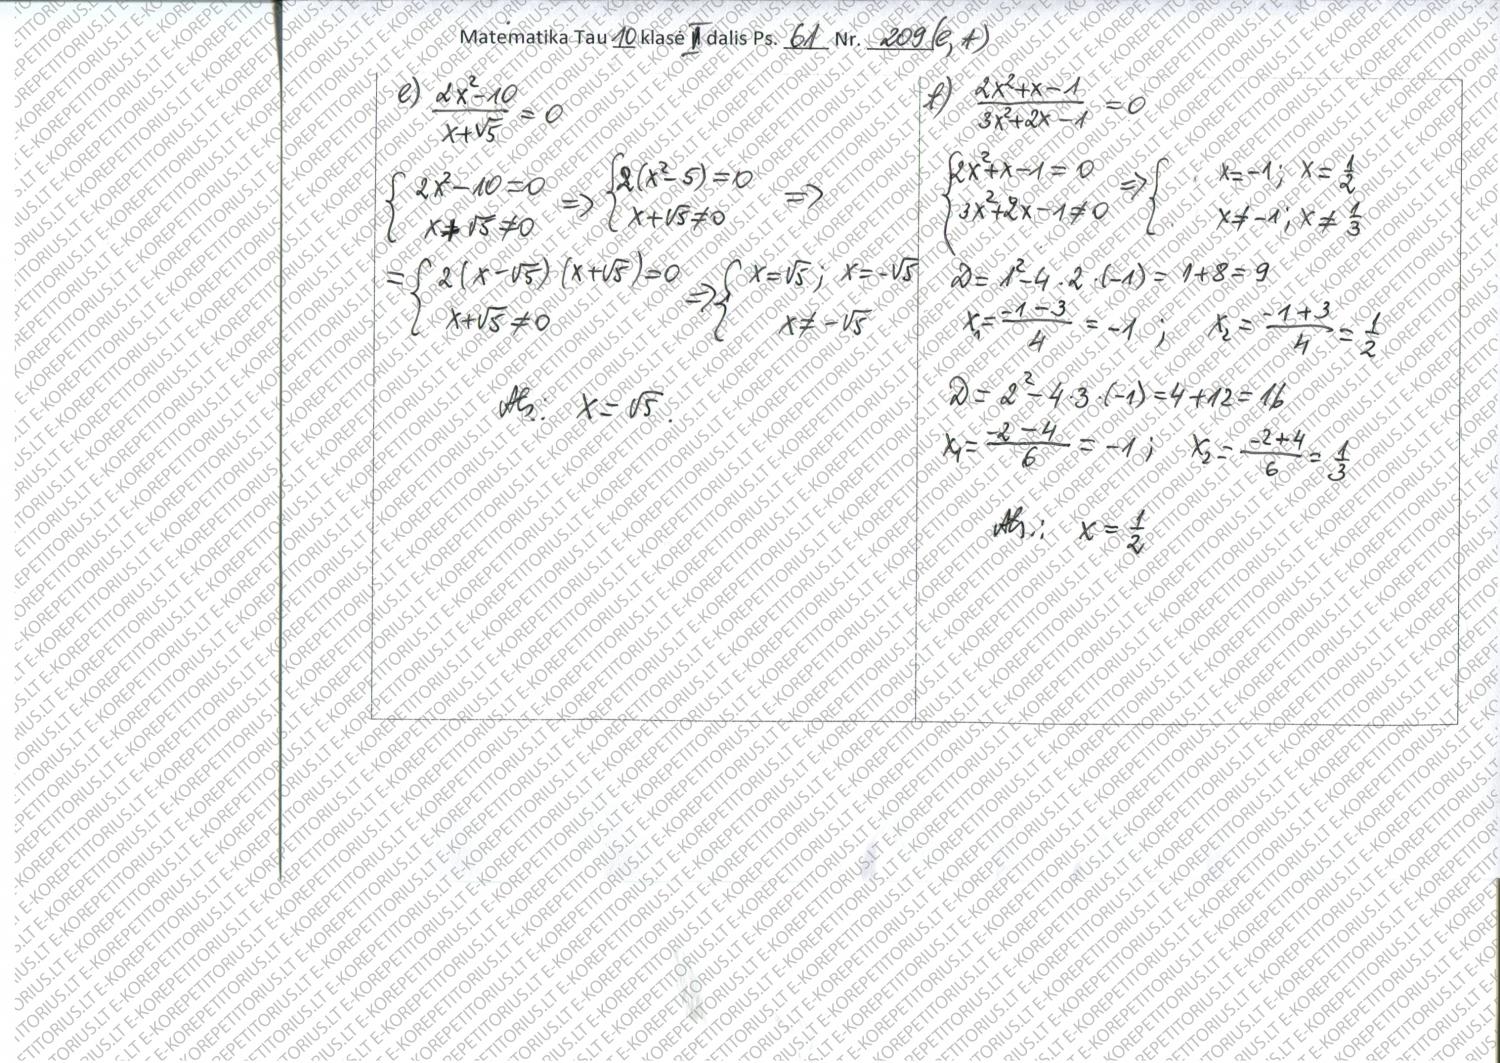 Matematika Tau 10 klasė II dalis Ps. 61 Nr. 209(e, f)
e) (2x²-10)/(x+√5) = 0
{ 2x²-10=0 => { 2(x²-5)=0 =>
x+√5≠0 x+√5≠0
= { 2(x-√5)(x+√5)=0 => { x=√5; x=-√5
x+√5≠0 x≠-√5
Ats.: x=√5.
f) (2x²+x-1)/(3x²+2x-1) = 0
{ 2x²+x-1=0 => { x=-1; x=1/2
3x²+2x-1≠0 x≠-1; x≠1/3
D=1²-4·2·(-1)=1+8=9
x₁=(-1-3)/4=-1; x₂=(-1+3)/4=1/2
D=2²-4·3·(-1)=4+12=16
x₁=(-2-4)/6=-1; x₂=(-2+4)/6=1/3
Ats.: x=1/2
E-KOREPETITORIUS.LT